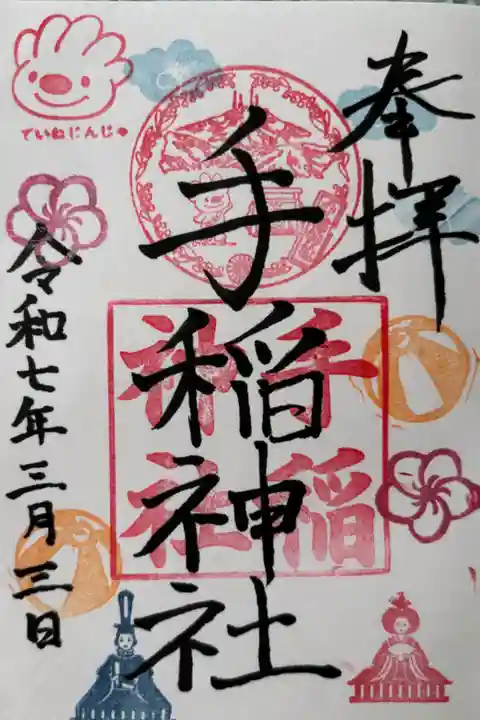 奉拝
手稲神社
手稲
神社
令和七年三月三日
ていねじんじゃ